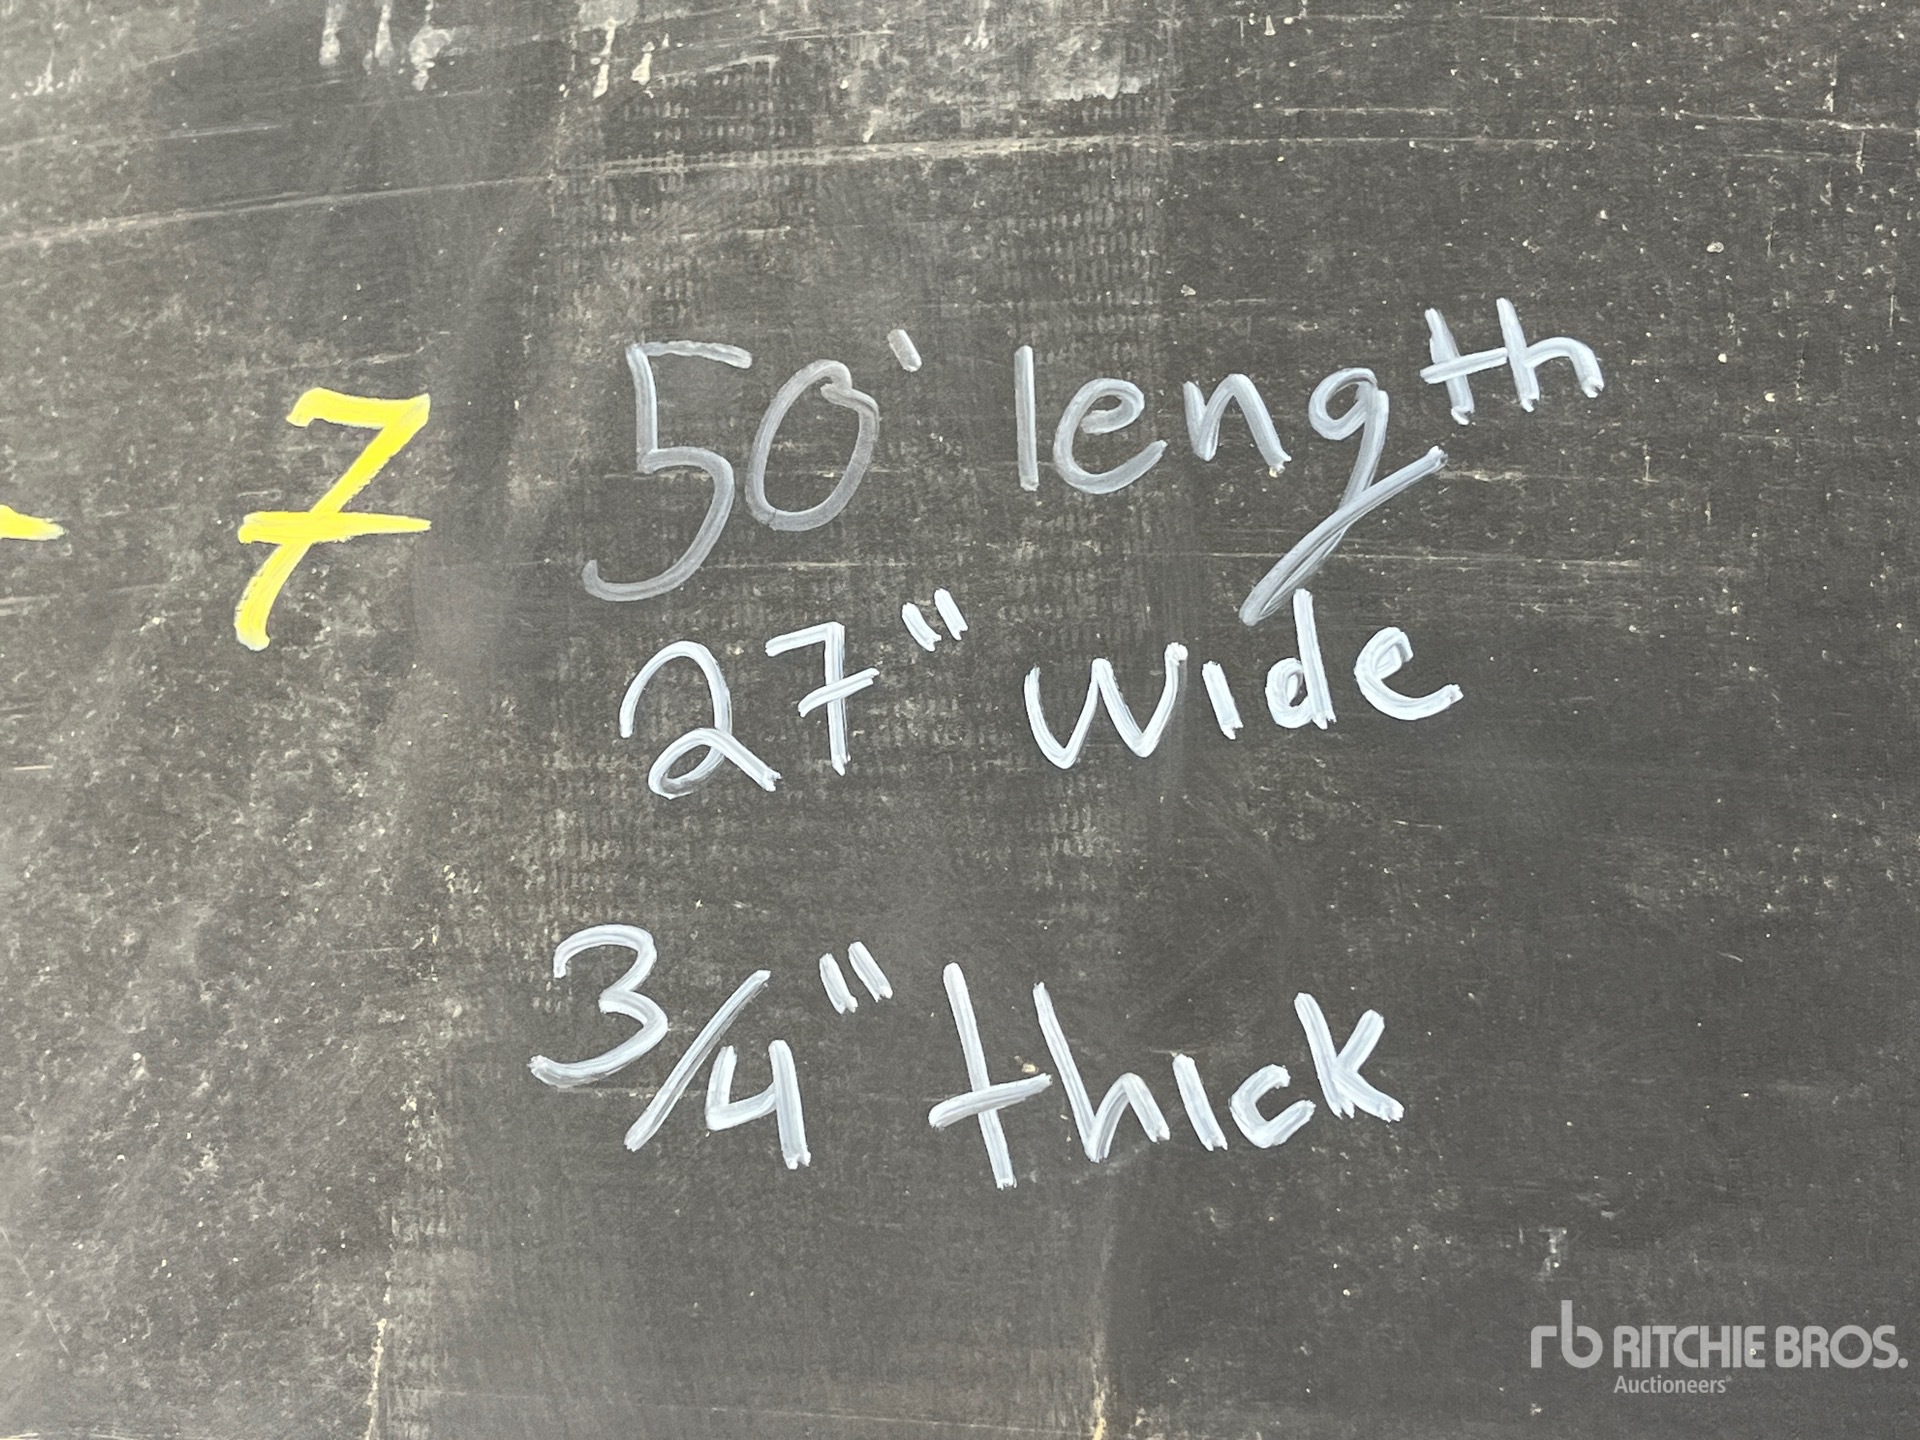 - 7
50' length
27" wide
3/4" thick
rb RITCHIE BROS.
Auctioneers